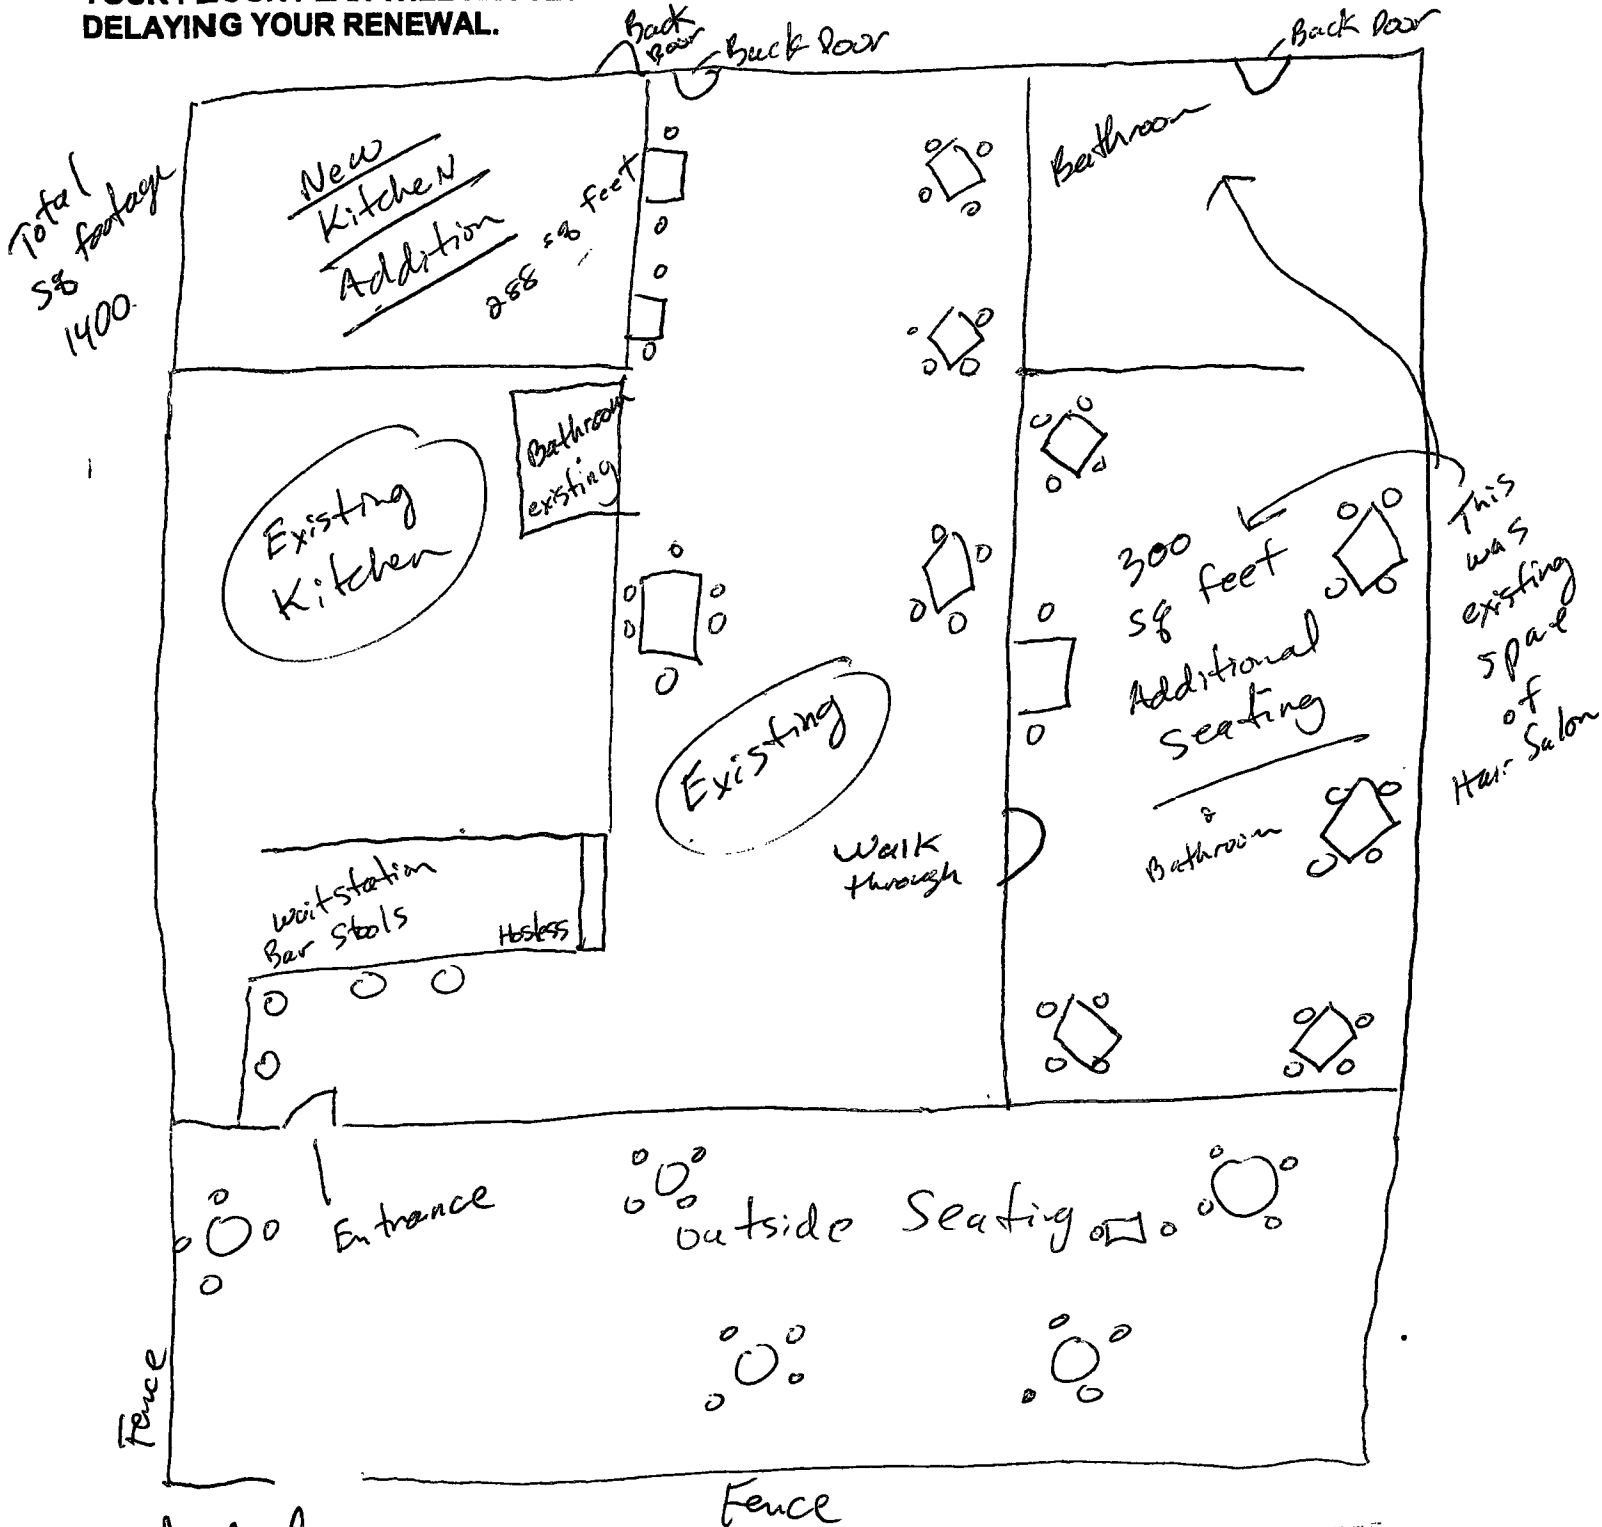 DELAYING YOUR RENEWAL.
Back
Door
Back Door
Back Door
Total
sq footage
1400.
New
Kitchen
Addition
288 sq feet
Bathroom
Bathroom
existing
Existing
Kitchen
300
sq feet
Additional
Seating
Bathroom
This
was
existing
space
of
Hair Salon
Existing
Walk
through
waitstation
Bar Stools
Hostess
Entrance
outside Seating
Fence
Fence